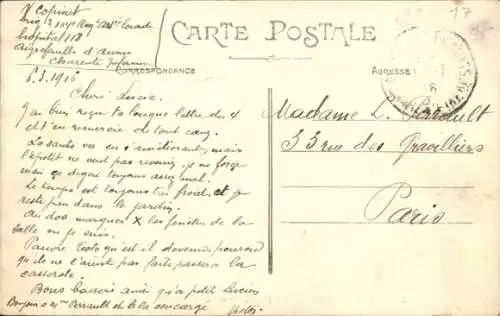 V Copinet
Hôpital 118
Aigrefeuille d'Aunis
Charente Inférieure
6.3.1916
CARTE POSTALE
CORRESPONDANCE
ADRESSE
Chère Lucie.
J'ai bien reçu ta longue lettre du 4
et t'en remercie de tout cœur.
La santé va en s'améliorant, mais
l'apétit ne veut pas revenir, je me force
mais je digère toujours assez mal.
Le temps est toujours très froid, et je
reste peu dans le jardin.
Au dos marqués X les fenêtres de la
salle où je suis.
Pauvre Toto qu'est il devenu, pourvu
qu'ils ne l'aient pas fait passer à la
casserole.
Bons baisers ainsi qu'à petit Lucien
Bonjour à Mme Perrault et à la concierge
Victor
Madame L. Perrault
33 rue des Gravilliers
Paris